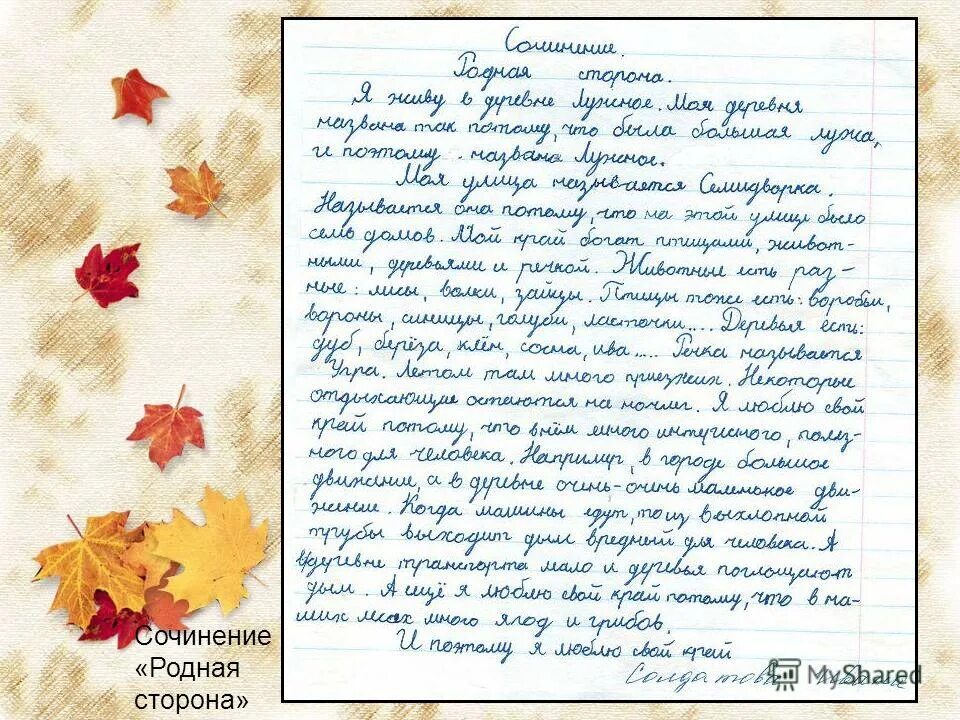 Сочинение.
Родная сторона.
Я живу в деревне Лужное. Моя деревня
названа так потому, что была большая лужа,
и поэтому названа Лужное.
Моя улица называется Семидворка.
Называется она потому, что на этой улице было
семь домов. Мой край богат птицами, живот-
ными, деревьями и речкой. Животные есть раз-
ные: лисы, волки, зайцы. Птицы тоже есть: воробьи,
вороны, синицы, голуби, ласточки.... Деревья есть:
дуб, берёза, клён, сосна, ива..... Речка называется
Угра. Летом там много приезжих. Некоторые
отдыхающие остаются на ночлег. Я люблю свой
край потому, что в нём много интересного, полез-
ного для человека. Например, в городе большое
движение, а в деревне очень-очень маленькое дви-
жение. Когда машины едут, то из выхлопной
трубы выходит дым вредный для человека. А
в деревне транспорта мало и деревья поглощают
дым. А ещё я люблю свой край потому, что в на-
ших лесах много ягод и грибов.
И поэтому я люблю свой край
Солдатова
Сочинение
«Родная
сторона»
MyShared